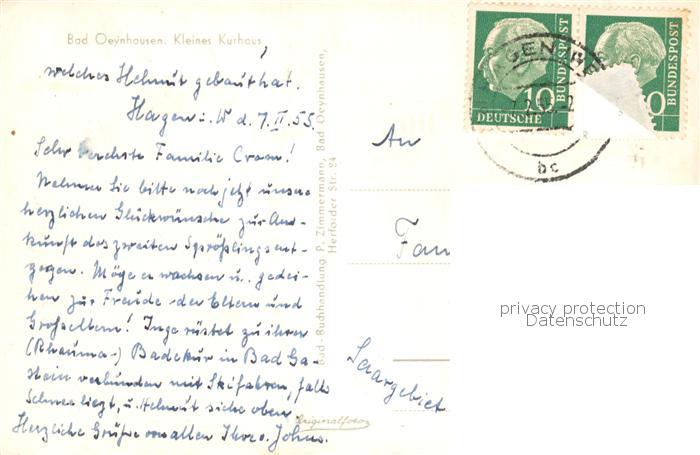 Bad Oeynhausen. Kleines Kurhaus
welches Helmut gebaut hat.
Hagen i. W d. 7. II. 55.
Sehr verehrte Familie Cram!
Nehmen Sie bitte noch jetzt unsere
herzlichen Glückwünsche zur An-
kunft des zweiten Sprößlings ent-
gegen. Möge er wachsen u. gedei-
hen zur Freude der Eltern und
Großeltern! Inge rüstet zu ihrer
(Rheuma-) Badekur in Bad Ga-
stein verbunden mit Skifahren, falls
Schnee liegt, u. Helmut siehe oben
Herzliche Grüße von allen Ihre Johns.
Originalfoto
Bad-Buchhandlung P. Zimmermann, Bad Oeynhausen,
Herforder Str. 24
An
Fam
Saargebiet
10
DEUTSCHE
BUNDESPOST
0
BUNDESPOST
bc
privacy protection
Datenschutz